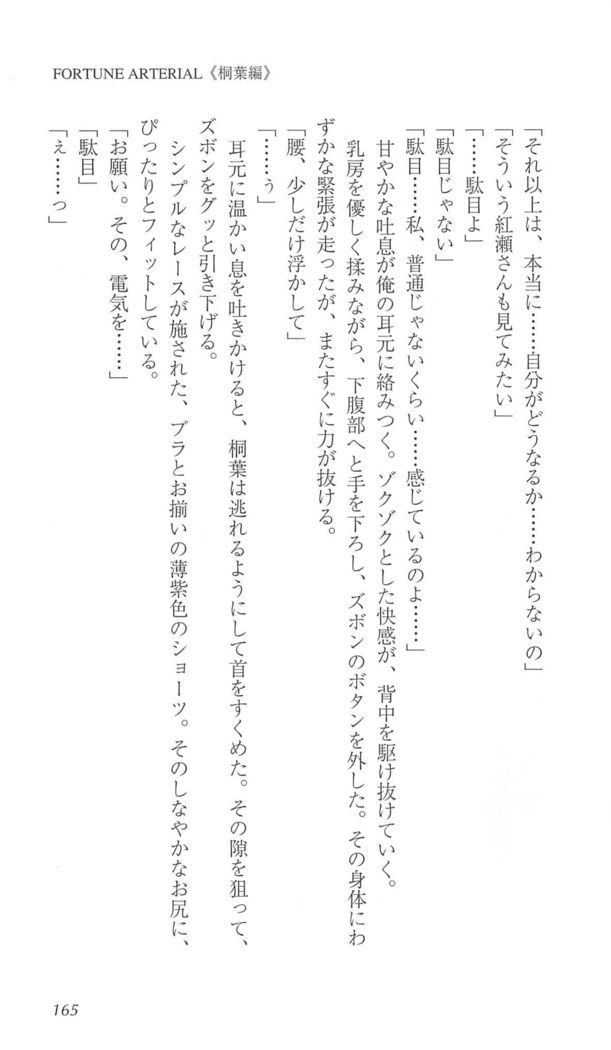 FORTUNE ARTERIAL《桐葉編》
「それ以上は、本当に……自分がどうなるか……わからないの」
「そういう紅瀬さんも見てみたい」
「……駄目よ」
「駄目じゃない」
「駄目……私、普通じゃないくらい……感じているのよ……」
甘やかな吐息が俺の耳元に絡みつく。ゾクゾクとした快感が、背中を駆け抜けていく。
乳房を優しく揉みながら、下腹部へと手を下ろし、ズボンのボタンを外した。その身体にわ
ずかな緊張が走ったが、またすぐに力が抜ける。
「腰、少しだけ浮かして」
「……ぅ」
耳元に温かい息を吐きかけると、桐葉は逃れるようにして首をすくめた。その隙を狙って、
ズボンをグッと引き下げる。
シンプルなレースが施された、ブラとお揃いの薄紫色のショーツ。そのしなやかなお尻に、
ぴったりとフィットしている。
「お願い。その、電気を……」
「駄目」
「ぇ……っ」
165